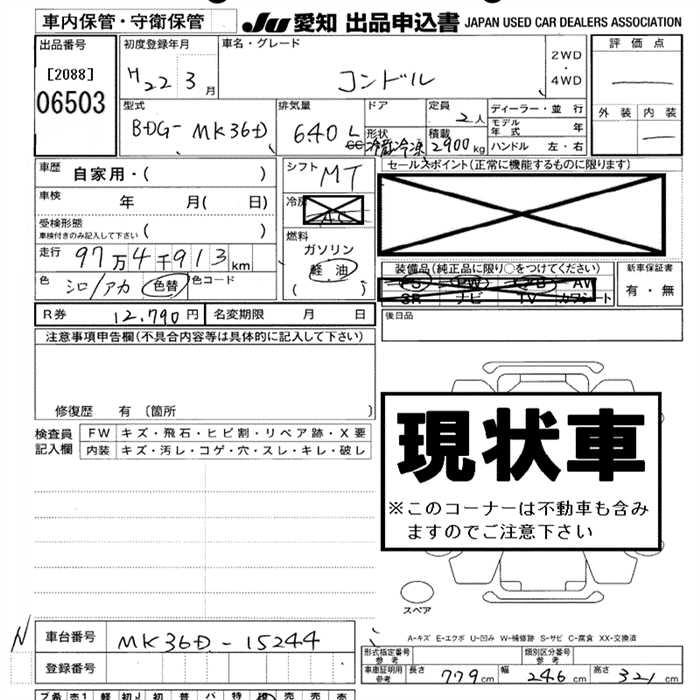 車内保管・守衛保管
JU 愛知 出品申込書 JAPAN USED CAR DEALERS ASSOCIATION
出品番号
[2088]
06503
初度登録年月
H22 3月
車名・グレード
コンドル
2WD
・
4WD
評価点
外装 内装
型式
BDG- MK36D
排気量
6.40 L
cc
ドア
形状
冷蔵冷凍
定員
2人
積載
2900kg
ディーラー・並行
モデル年式 年
ハンドル 左・右
車歴
自家用・( )
車検
年 月( 日)
受検形態
車検付きのみ記入して下さい
( )
走行
97万4千913km
色
シロ/アカ
色替
色コード
シフト
MT
冷房
AC
燃料
ガソリン
軽油
( )
セールスポイント(正常に機能するものに限ります)
装備品(純正品に限り○をつけてください)
PS PW AB AW
SR ナビ TV カワシート
新車保証書
有・無
R券 12,790円
名変期限 月 日
後日品
注意事項申告欄(不具合内容等は具体的に記入して下さい)
修復歴 有 〔箇所 〕
検査員
記入欄
FW キズ・飛石・ヒビ割・リペア跡・X要
内装 キズ・汚レ・コゲ・穴・スレ・キレ・破レ
現状車
※このコーナーは不動車も含み
ますのでご注意下さい
スペア
N
車台番号 MK36D-15244
登録番号
A-キズ E-エクボ U-凹み W-補修跡 S-サビ C-腐食 XX-交換済
形式指定番号
参考
類別区分番号
参考
車庫証明用
参考
長さ 779cm 幅 246cm 高さ 321cm